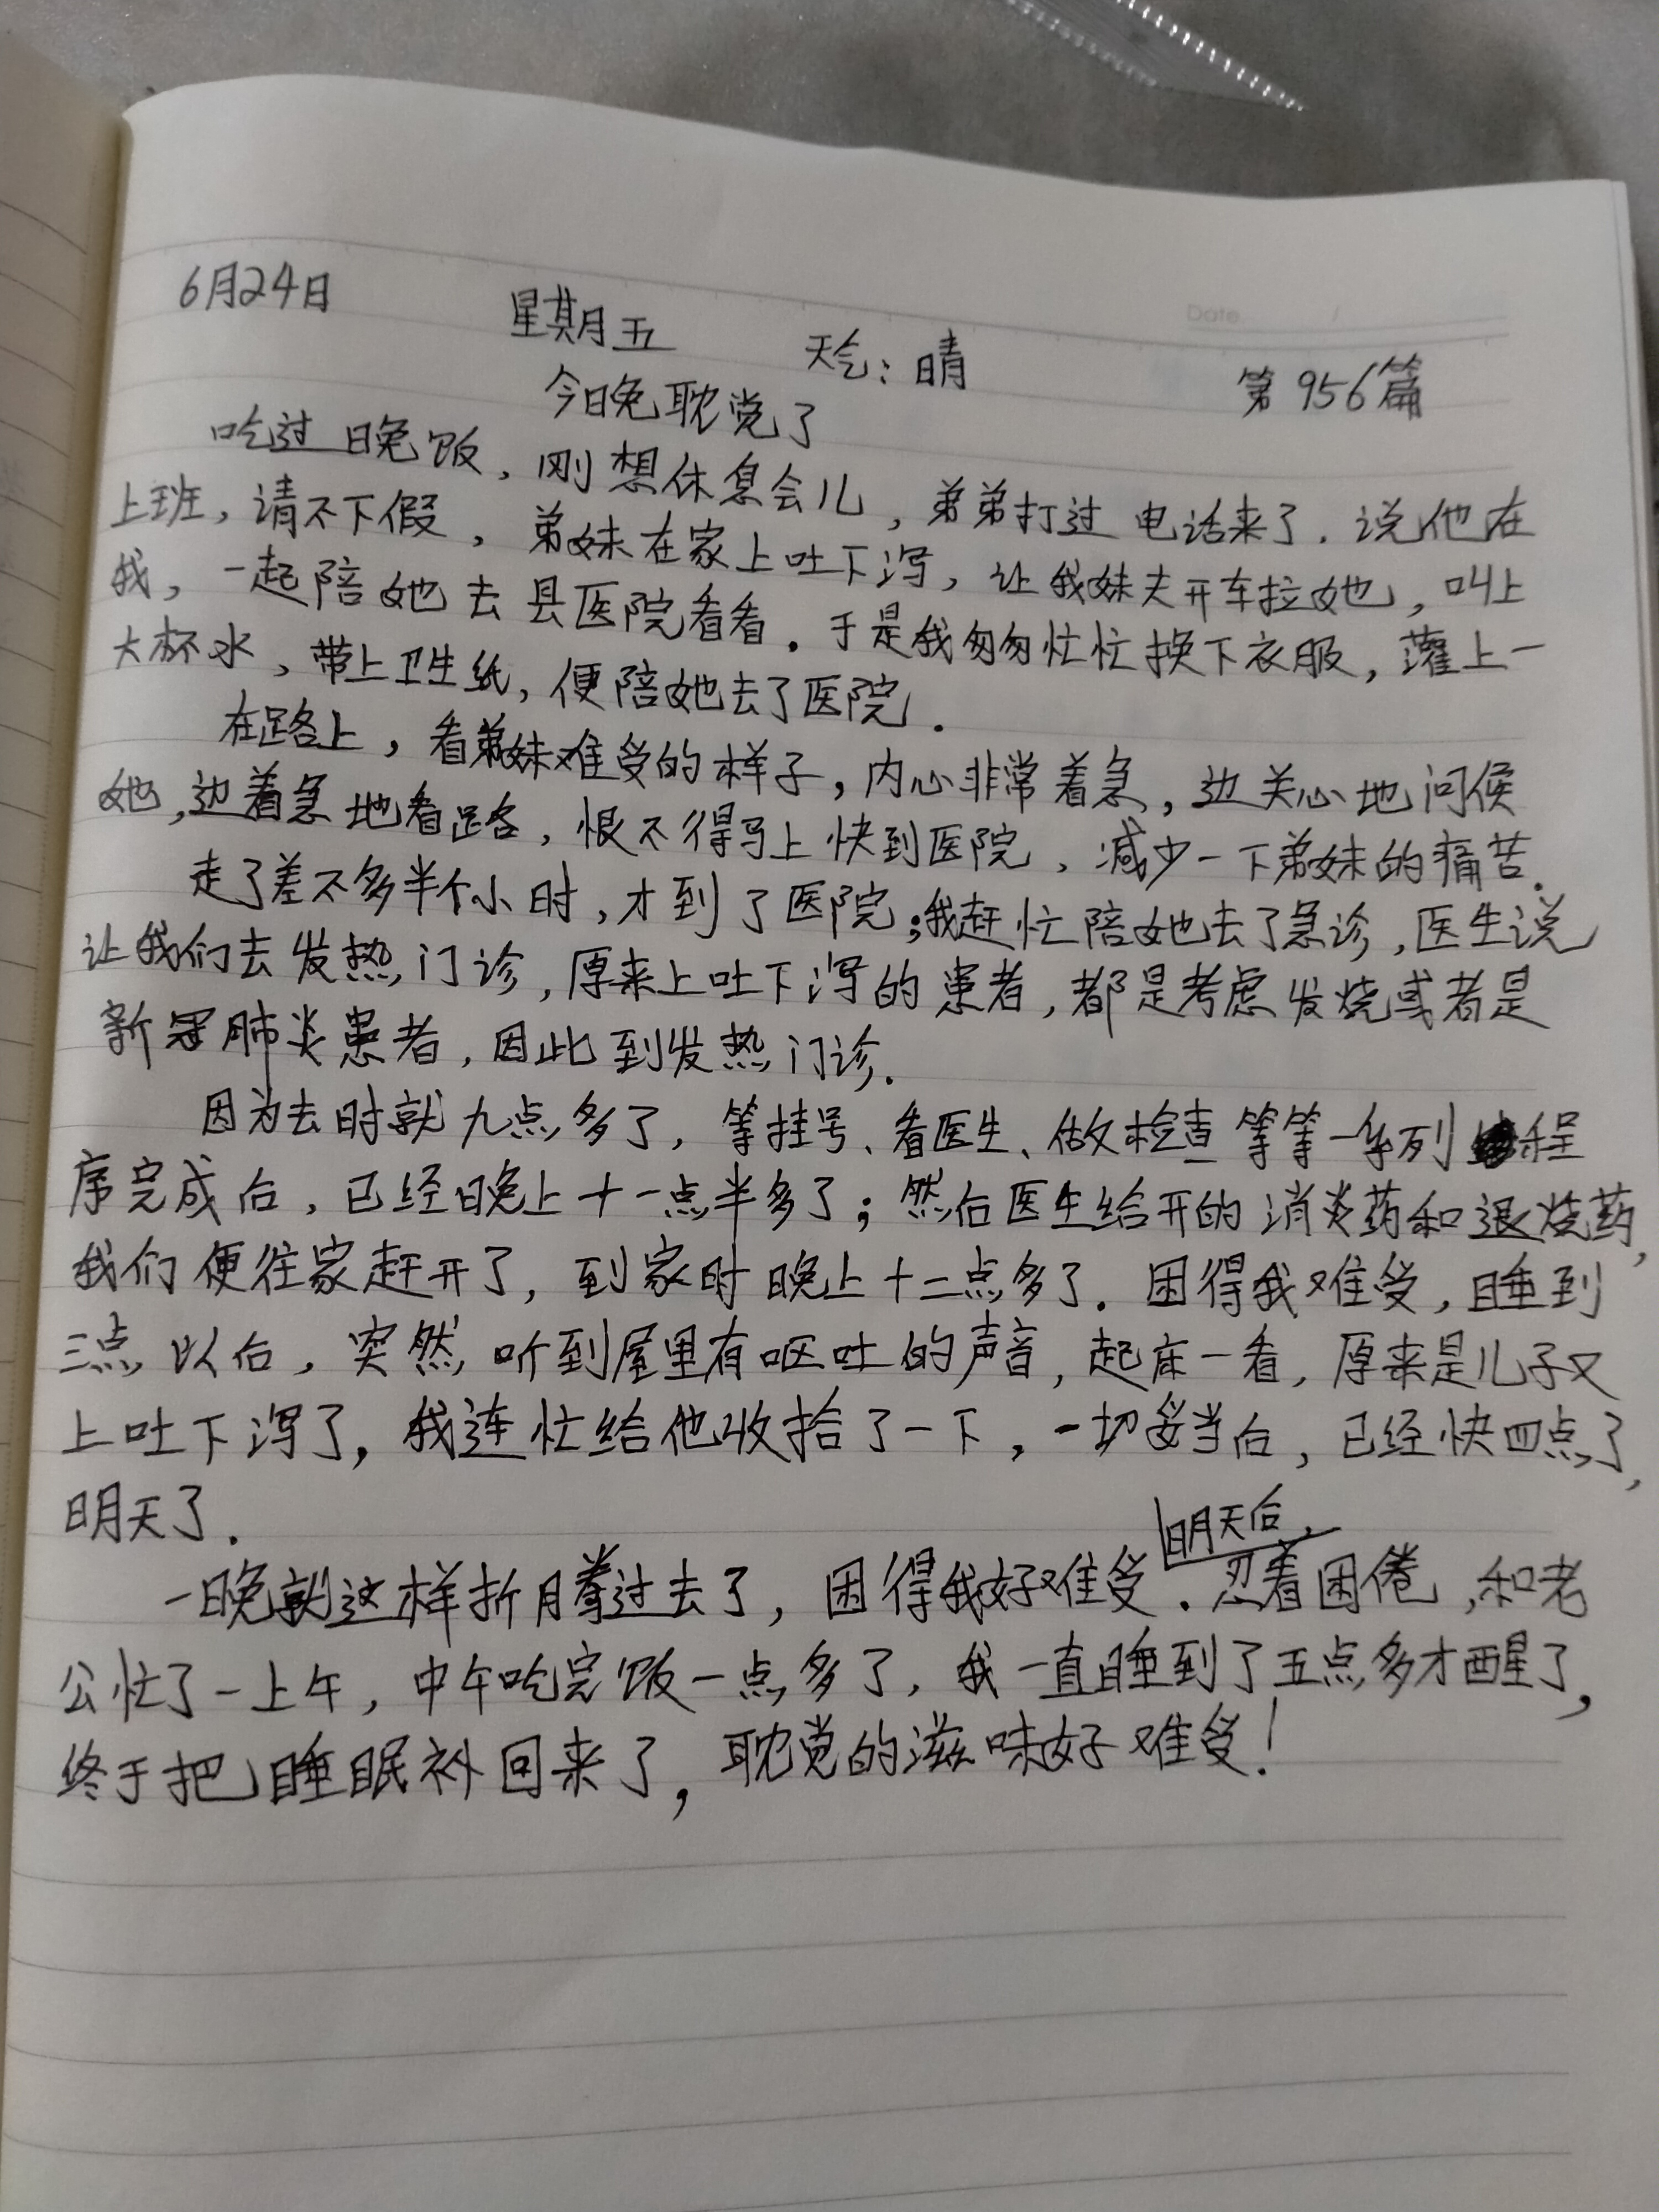 Date /
6月24日 星期五 天气：晴 第956篇
今日晚耽觉了
吃过晚饭，刚想休息会儿，弟弟打过电话来了．说他在
上班，请不下假，弟妹在家上吐下泻，让我妹夫开车拉她，叫上
我，一起陪她去县医院看看．于是我匆匆忙忙换下衣服，灌上一
大杯水，带上卫生纸，便陪她去了医院．
在路上，看弟妹难受的样子，内心非常着急，边关心地问候
她，边着急地看路，恨不得马上快到医院，减少一下弟妹的痛苦．
走了差不多半个小时，才到了医院；我赶忙陪她去了急诊，医生说
让我们去发热门诊，原来上吐下泻的患者，都是考虑发烧或者是
新冠肺炎患者，因此到发热门诊．
因为去时就九点多了，等挂号、看医生、做检查等等一系列程
序完成后，已经晚上十一点半多了；然后医生给开的消炎药和退烧药，
我们便往家赶开了，到家时晚上十二点多了．困得我难受，睡到
三点以后，突然听到屋里有呕吐的声音，起床一看，原来是儿子又
上吐下泻了，我连忙给他收拾了一下，一切妥当后，已经快四点了，
明天了．
明天后，
一晚就这样折腾过去了，困得我好难受．忍着困倦，和老
公忙了一上午，中午吃完饭一点多了，我一直睡到了五点多才醒了，
终于把睡眠补回来了，耽觉的滋味好难受！